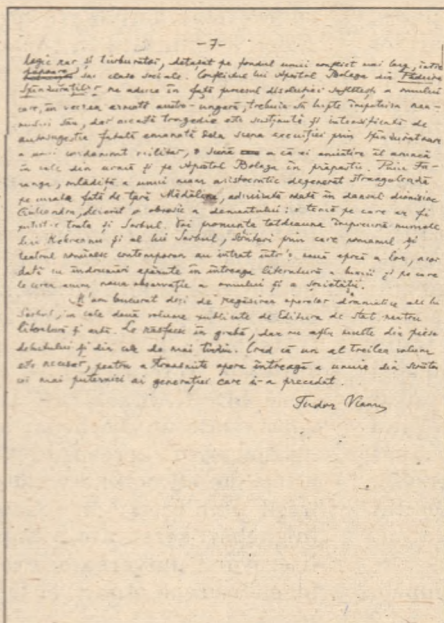 -7-
tragic rar și tulburător, detașat pe fondul unui conflict mai larg, între
popoare sau clase sociale. Conflictul lui Apostol Bologa din Pădurea
Spânzuraților ne aduce în față procesul disoluției sufletești a omului
care, în vechea armată austro-ungară, trebuia să lupte împotriva nea-
mului său, dar această tragedie este susținută și intensificată de
autosugestia fatală emanată dela scena execuției prin spânzurătoare
a unui condamnat militar, o scenă a că-ei amintire îl aruncă
în cele din urmă și pe Apostol Bologa în prăpastie. Puiu Fa-
ranga, mlădița a unui neam aristocratic degenerat strangulează
pe curata fată de țară Mădălina, admirată odată în dansul dionisiac
Ciuleandra, devenit o obsesie a dementului: o temă pe care ar fi
putut-o trata și Sorbul. Voi pronunța totdeauna împreună numele
lui Rebreanu și al lui Sorbul, scriitori prin care romanul și
teatrul românesc contemporan au intrat într'o nouă epocă a lor, oar
dată cu îndemnuri apărute în întreaga literatură a lumii și pe care
le cerea acum noua observație a omului și a societății.
M'am bucurat deci de regăsirea operelor dramatice ale lui
Sorbul, în cele două volume publicate de Editura de Stat pentru
literatură și artă. Le răsfoesc în grabă, dar nu aflu multe din piesele
debutului și din cele de mai târziu. Cred că un al treilea volum
este necesar, pentru a transmite opera întreagă a unuia din scriito-
rii mai puternici ai generației care ne-a precedat.
Tudor Vianu